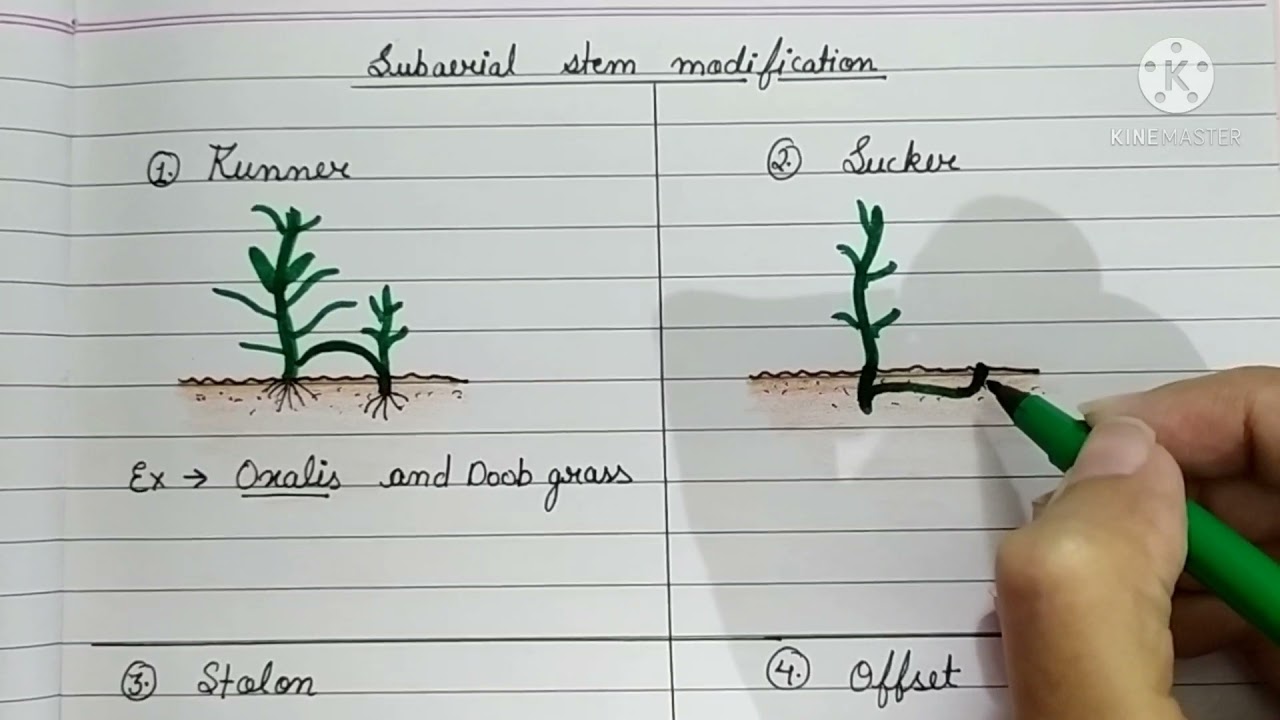 Subaerial stem modification
1. Runner
2. Sucker
Ex → Oxalis and Doob grass
3. Stolon
4. Offset
K
KINEMASTER